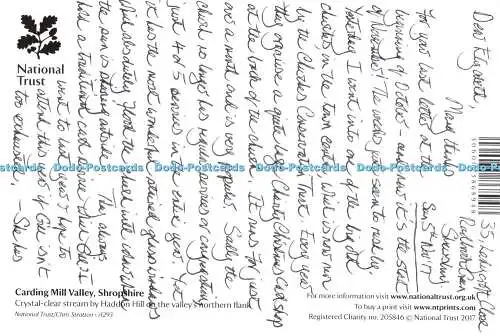 National
Trust
Shrewsbury
Sun 5th Nov 17
Dear Elizabeth,
Many thanks
for your last letter at the
beginning of October - and now it's the start
of November! The weeks just seem to rush by.
Yesterday I went into one of the big
churches in the town centre which is now run
by the Churches Conservation Trust. Every year
they organise a quite big Charity Christmas Card shop
at the back of the church. It runs for just
over a month and is very popular. Sadly the
church no longer has regular services or congregation
just 4 or 5 services in the entire year! Yet
it has the most wonderful stained glass windows
which absolutely flood the church with colour when
the sun is shining outside. They always
hold a traditional carol service there
went to last year's & hope to
attend this year's if isn't
too exhausted. - She has
Dodo-Postcards Dodo-Postcards Dodo-Postcards Dodo-Postcards
Carding Mill Valley, Shropshire
Crystal-clear stream by Haddon Hill on the valley's northern flank
National Trust/Chris Stratton
For more information visit www.nationaltrust.org.uk
To buy a print visit www.ntprints.com
Registered charity no. 205846 © National Trust 2017